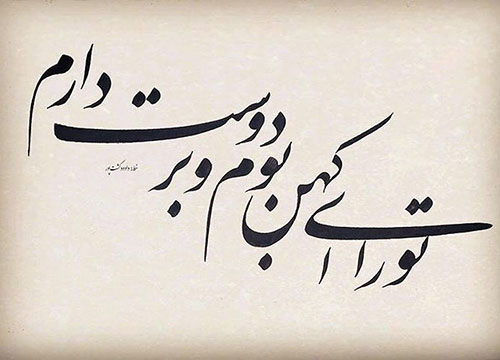 تو را ای کهن بوم و بر دوست دارم